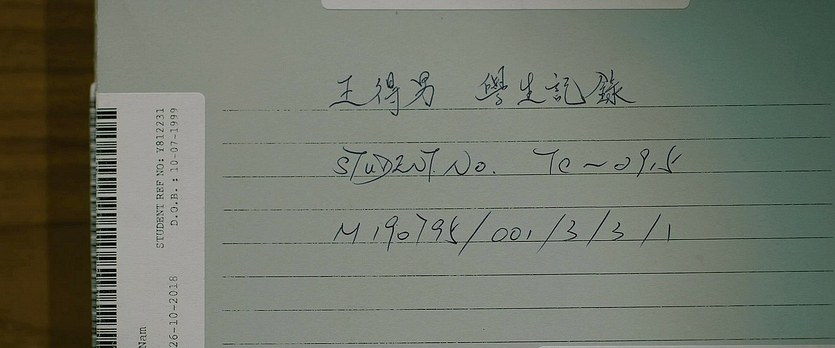 王得男 學生記錄
STUDENT No. TC-0295
M190795/001/3/3/1
STUDENT REF NO: Y812231
D.O.B. : 10-07-1999
Nam
26-10-2018